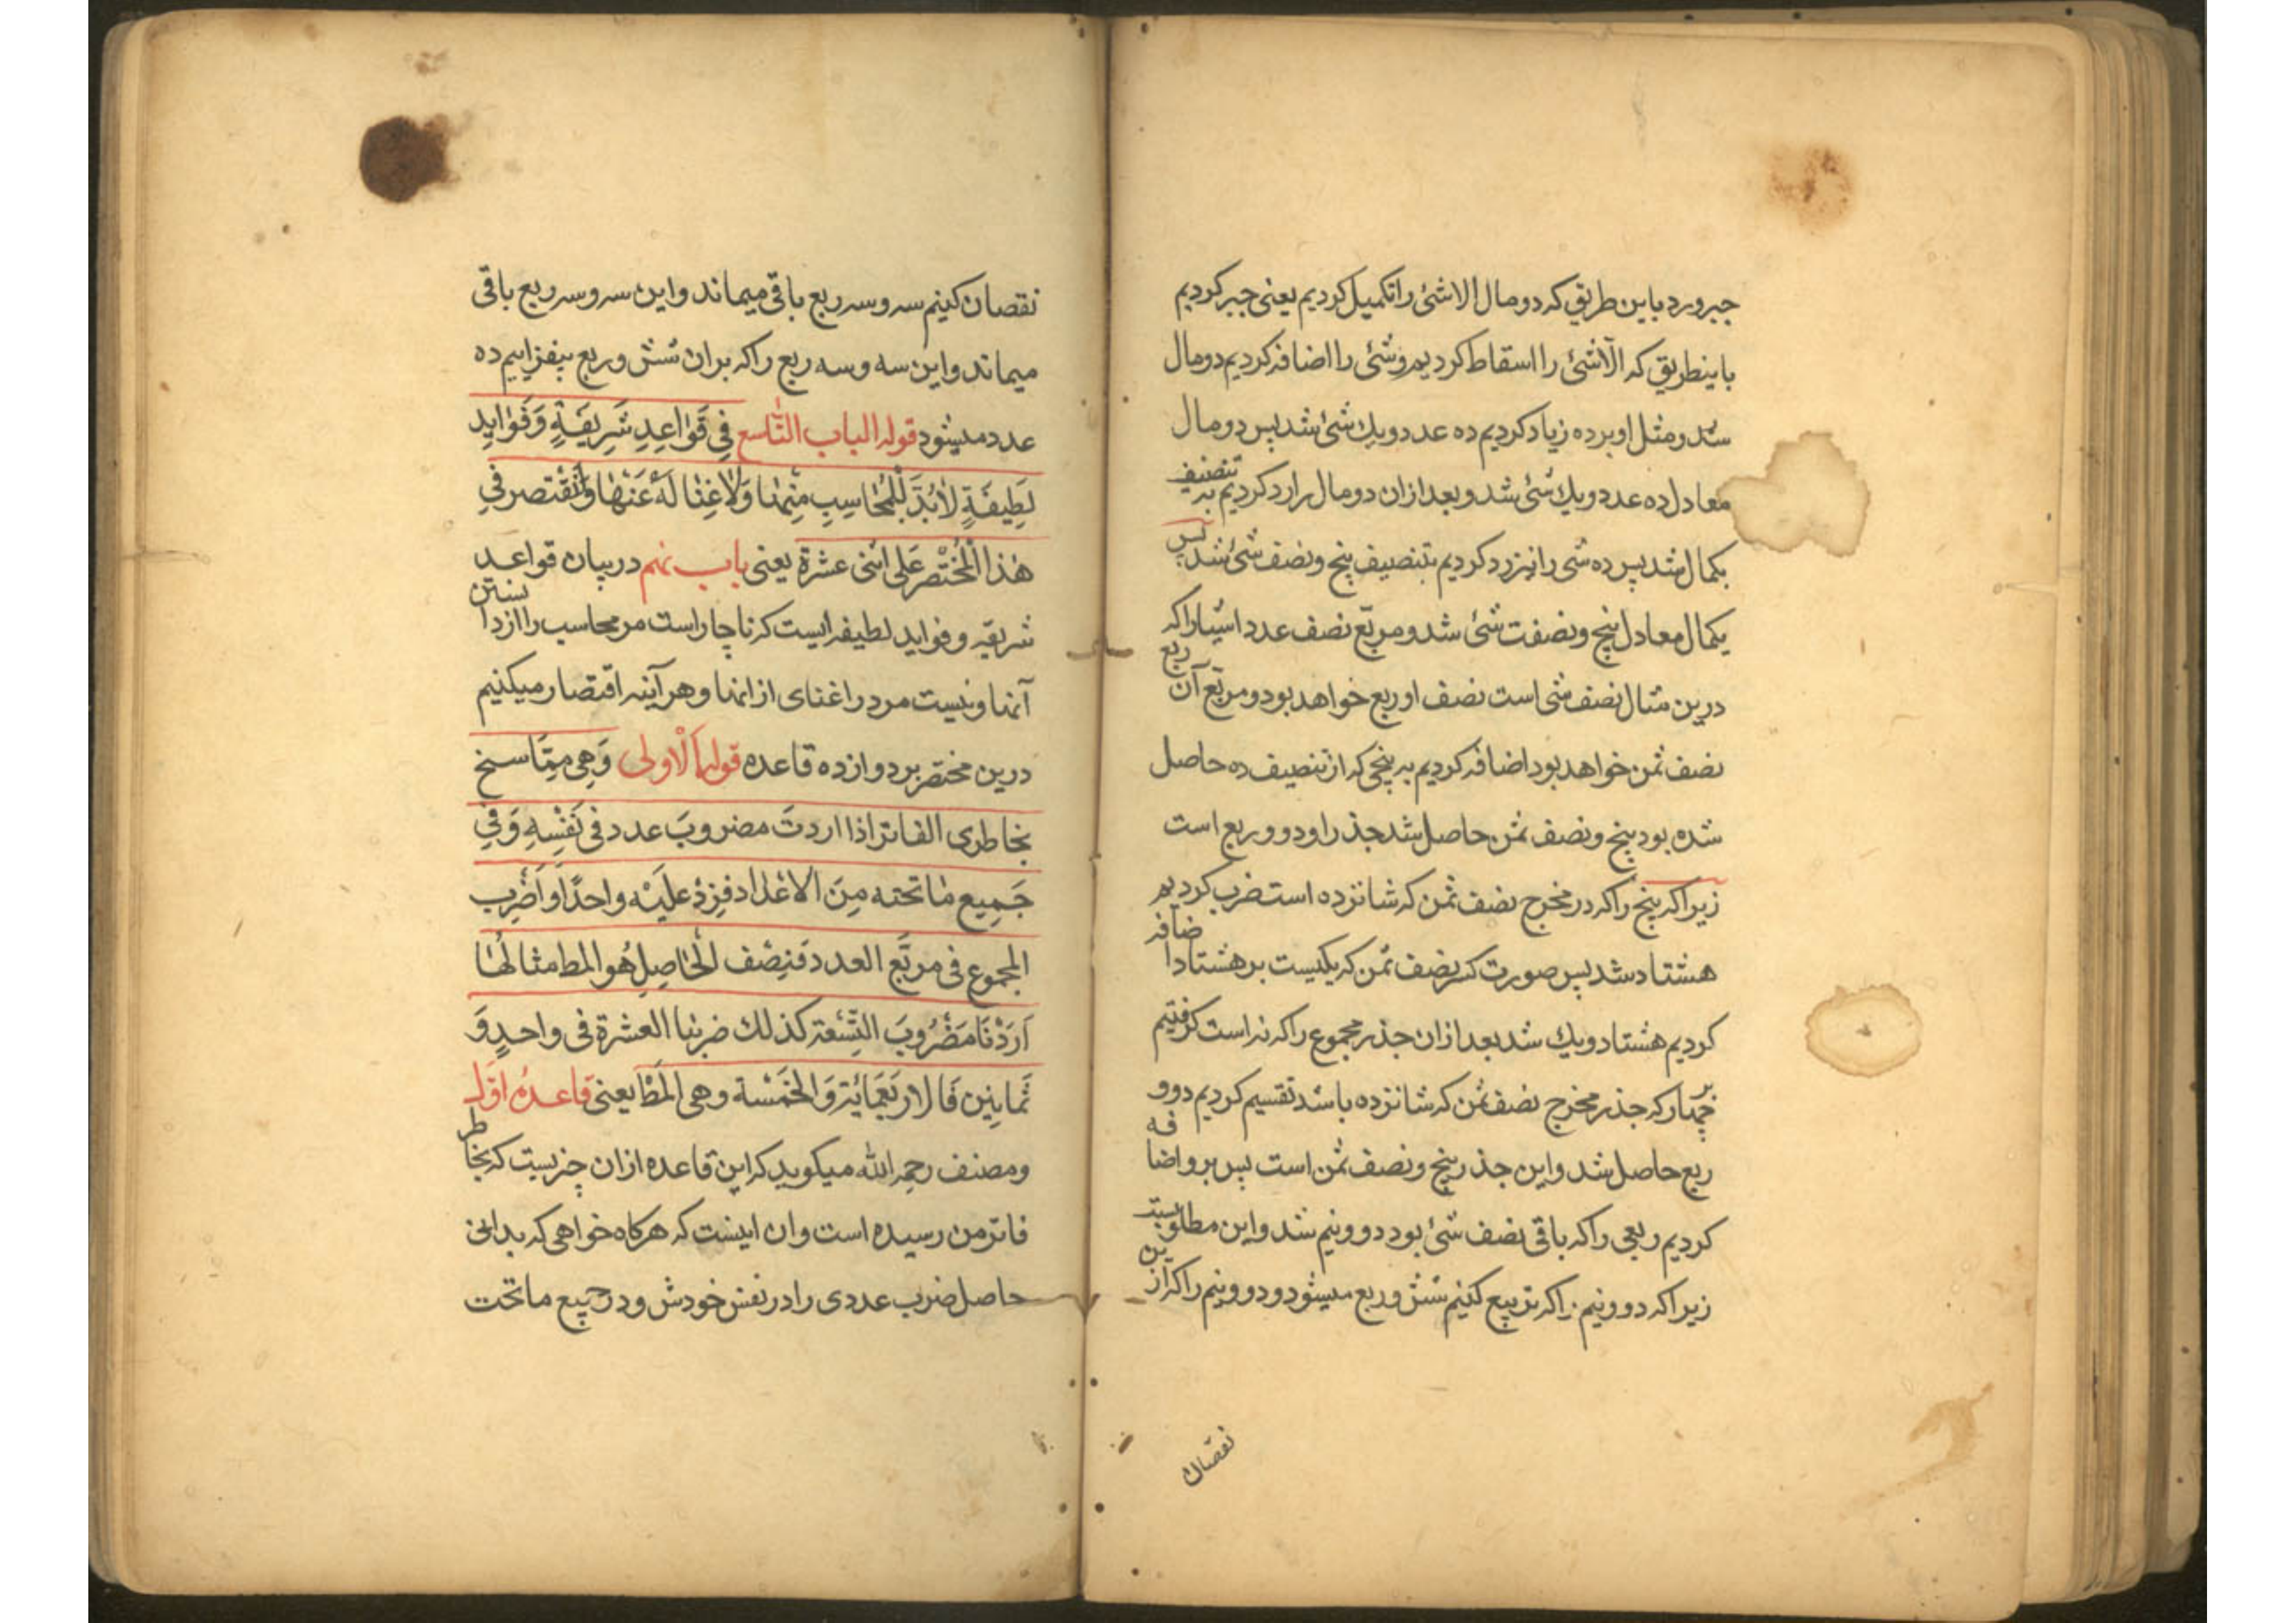 جبر و رد باین طریق که دو مال الاشئ را تکمیل کردیم یعنی جبر کردیم
باینطریق که الّاشئ را اسقاط کردیم وشئ را اضافه کردیم دومال
شد ومثل او بر ده زیاد کردیم ده عدد ویك شئ شد پس دومال
معادل ده عدد ویك شئ شد وبعد ازان دومال را رد کردیم به تنصیف
بکمال شد پس ده شی را نیز رد کردیم بتنصیف پنج ونصف شئ شد پس
یکمال معادل پنج ونصفت شئ شد ومربّع نصف عدد اشیارا که
درین مثال نصف شی است نصف او ربع خواهد بود ومربّع آن ربع
نصف ثمن خواهد بود اضافه کردیم به پنجی که از تنصیف ده حاصل
شده بود پنج ونصف ثمن حاصل شد جذر او دو وربع است
زیرا که پنج را که در مخرج نصف ثمن که شانزده است ضرب کردیم
هشتاد شد پس صورت کسر نصف ثمن که یکیست بر هشتاد اضافه
کردیم هشتاد ویك شد بعد ازان جذر مجموع را که نه است گرفتیم
بر چهار که جذر مخرج نصف ثمن که شانزده باشد تقسیم کردیم دو و
ربع حاصل شد واین جذر پنج ونصف ثمن است پس برو اضافه
کردیم ربعی را که باقی نصف شئ بود دو ونیم شد واین مطلوبست
زیرا که دو ونیم را که تربیع کنیم شش وربع میشود ودو ونیم را که از ین
نقصان
نقصان کنیم سه وسه ربع باقی میماند واین سه وسه ربع باقی
میماند واین سه وسه ربع را که بران شش وربع بیفزاییم ده
عدد میشود قوله الباب التّاسع فِی قَوٰاعِدِ شَرِیفَةٍ وَفَوٰایِد
لَطِیفَةٍ لاٰبُدَّ لِلْمُحٰاسِبِ مِنْهٰا وَلاٰ غِنٰا لَهُ عَنْهٰا وَلْنَقْتَصر فِی
هٰذَا الْمُخْتَصَرِ عَلی اثنی عشرة یعنی باب نهم در بیان قواعد
شریفه وفواید لطیفه ایست که ناچار است مر محاسب را از دانستن
آنها ونیست مر در اغنای از انها وهر آینه اقتصار میکنیم
درین مختصر بر دوازده قاعده قوله اَلْاولی وَهِی مِمّٰا سنح
بخاطری الفاتر اذا اردتَ مضروبَ عدد فی نَفْسِهِ وَفِی
جَمِیع مٰا تحته مِنَ الاعْدٰاد فَزِدْ عَلَیْه واحدًا وَاَضْرِب
المجموع فی مربّع العدد فَنِصْف الْحٰاصِلِ هُو المط مثالهٰا
اَرَدْنٰا مَضْرُوبَ التِّسْعَة کذلك ضربنا العشرة فی واحدٍ وَ
ثَمٰانِین فَالارْبَعَمِایَة وَالْخَمْسَة وهی الْمَط یعنی قاعدهٔ اوّل
ومصنف رحمه الله میکوید که این قاعده ازان چیزیست که بخاطر
فاتر من رسیده است وان اینست که هرکاه خواهی که بدانی
حاصل ضرب عددی را در نفس خودش ودر جمیع ما تحت